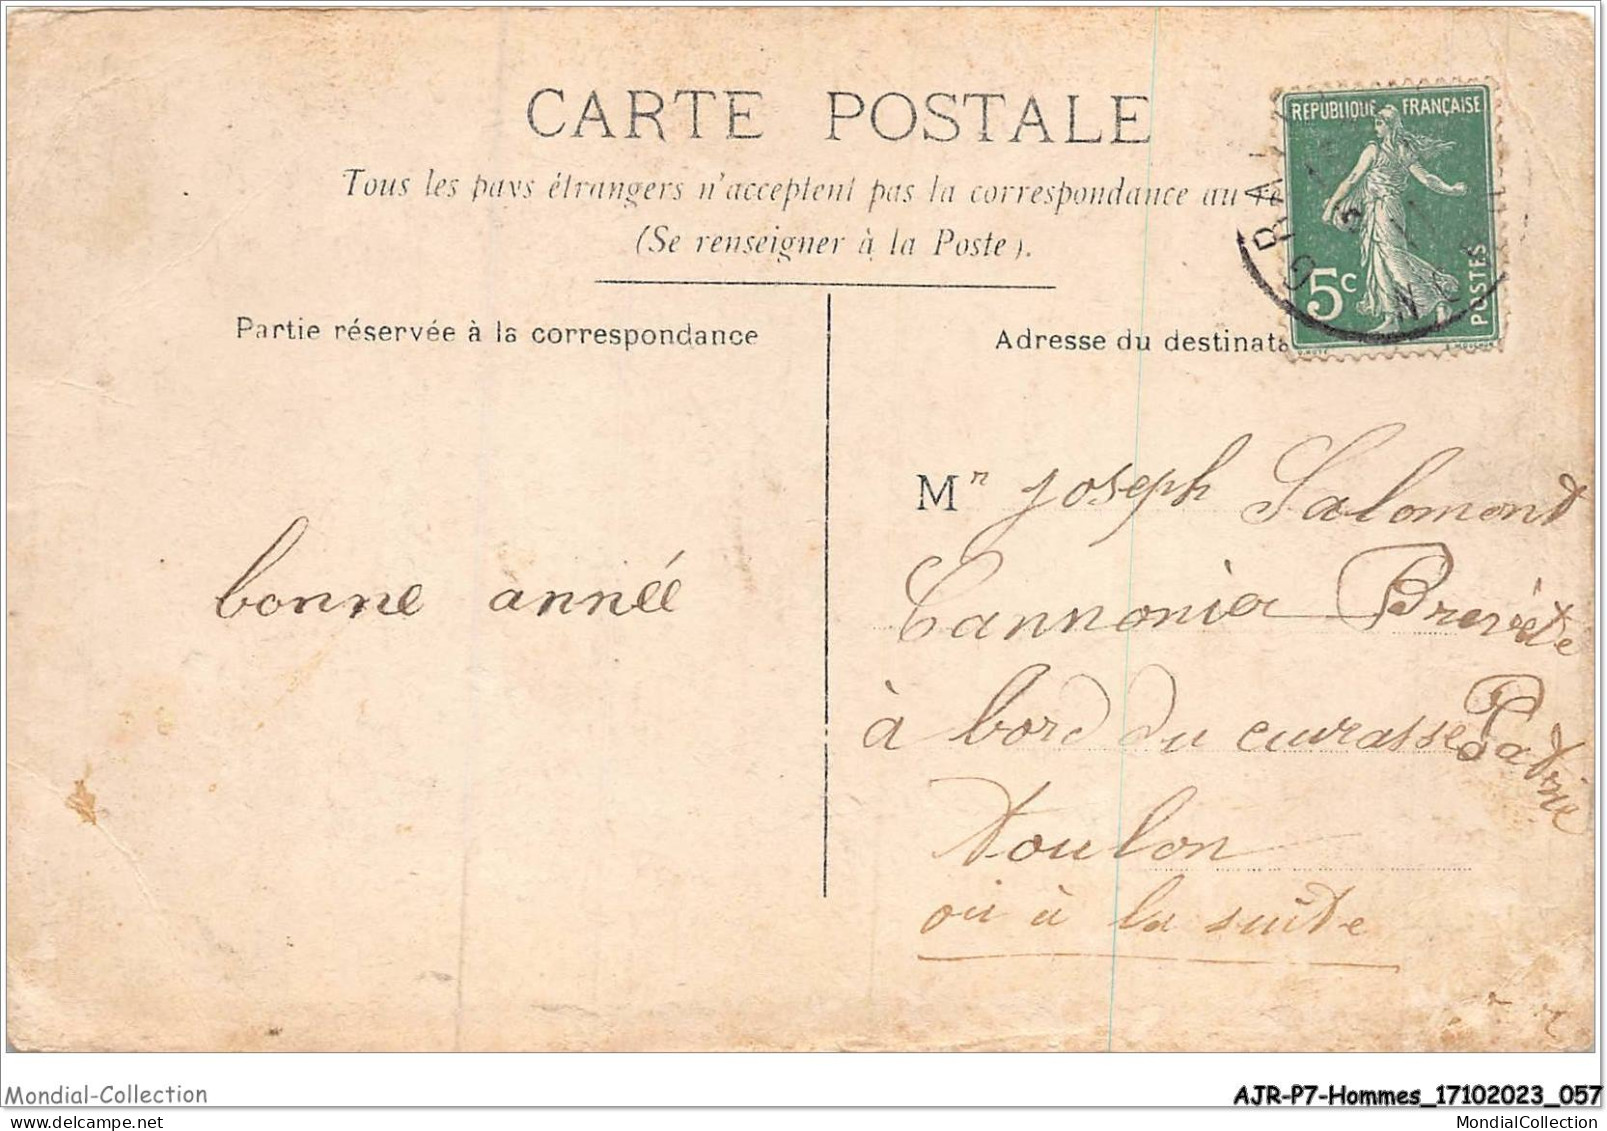 CARTE POSTALE
Tous les pays étrangers n'acceptent pas la correspondance au
(Se renseigner à la Poste).
REPUBLIQUE FRANÇAISE
5c
POSTES
Partie réservée à la correspondance
Adresse du destinata
bonne année
Mr Joseph Salomond
Cannonier Breveté
à bord du cuirassé Patrie
Toulon
ou à la suite
Mondial-Collection
AJR-P7-Hommes_17102023_057
delcampe.net
MondialCollection